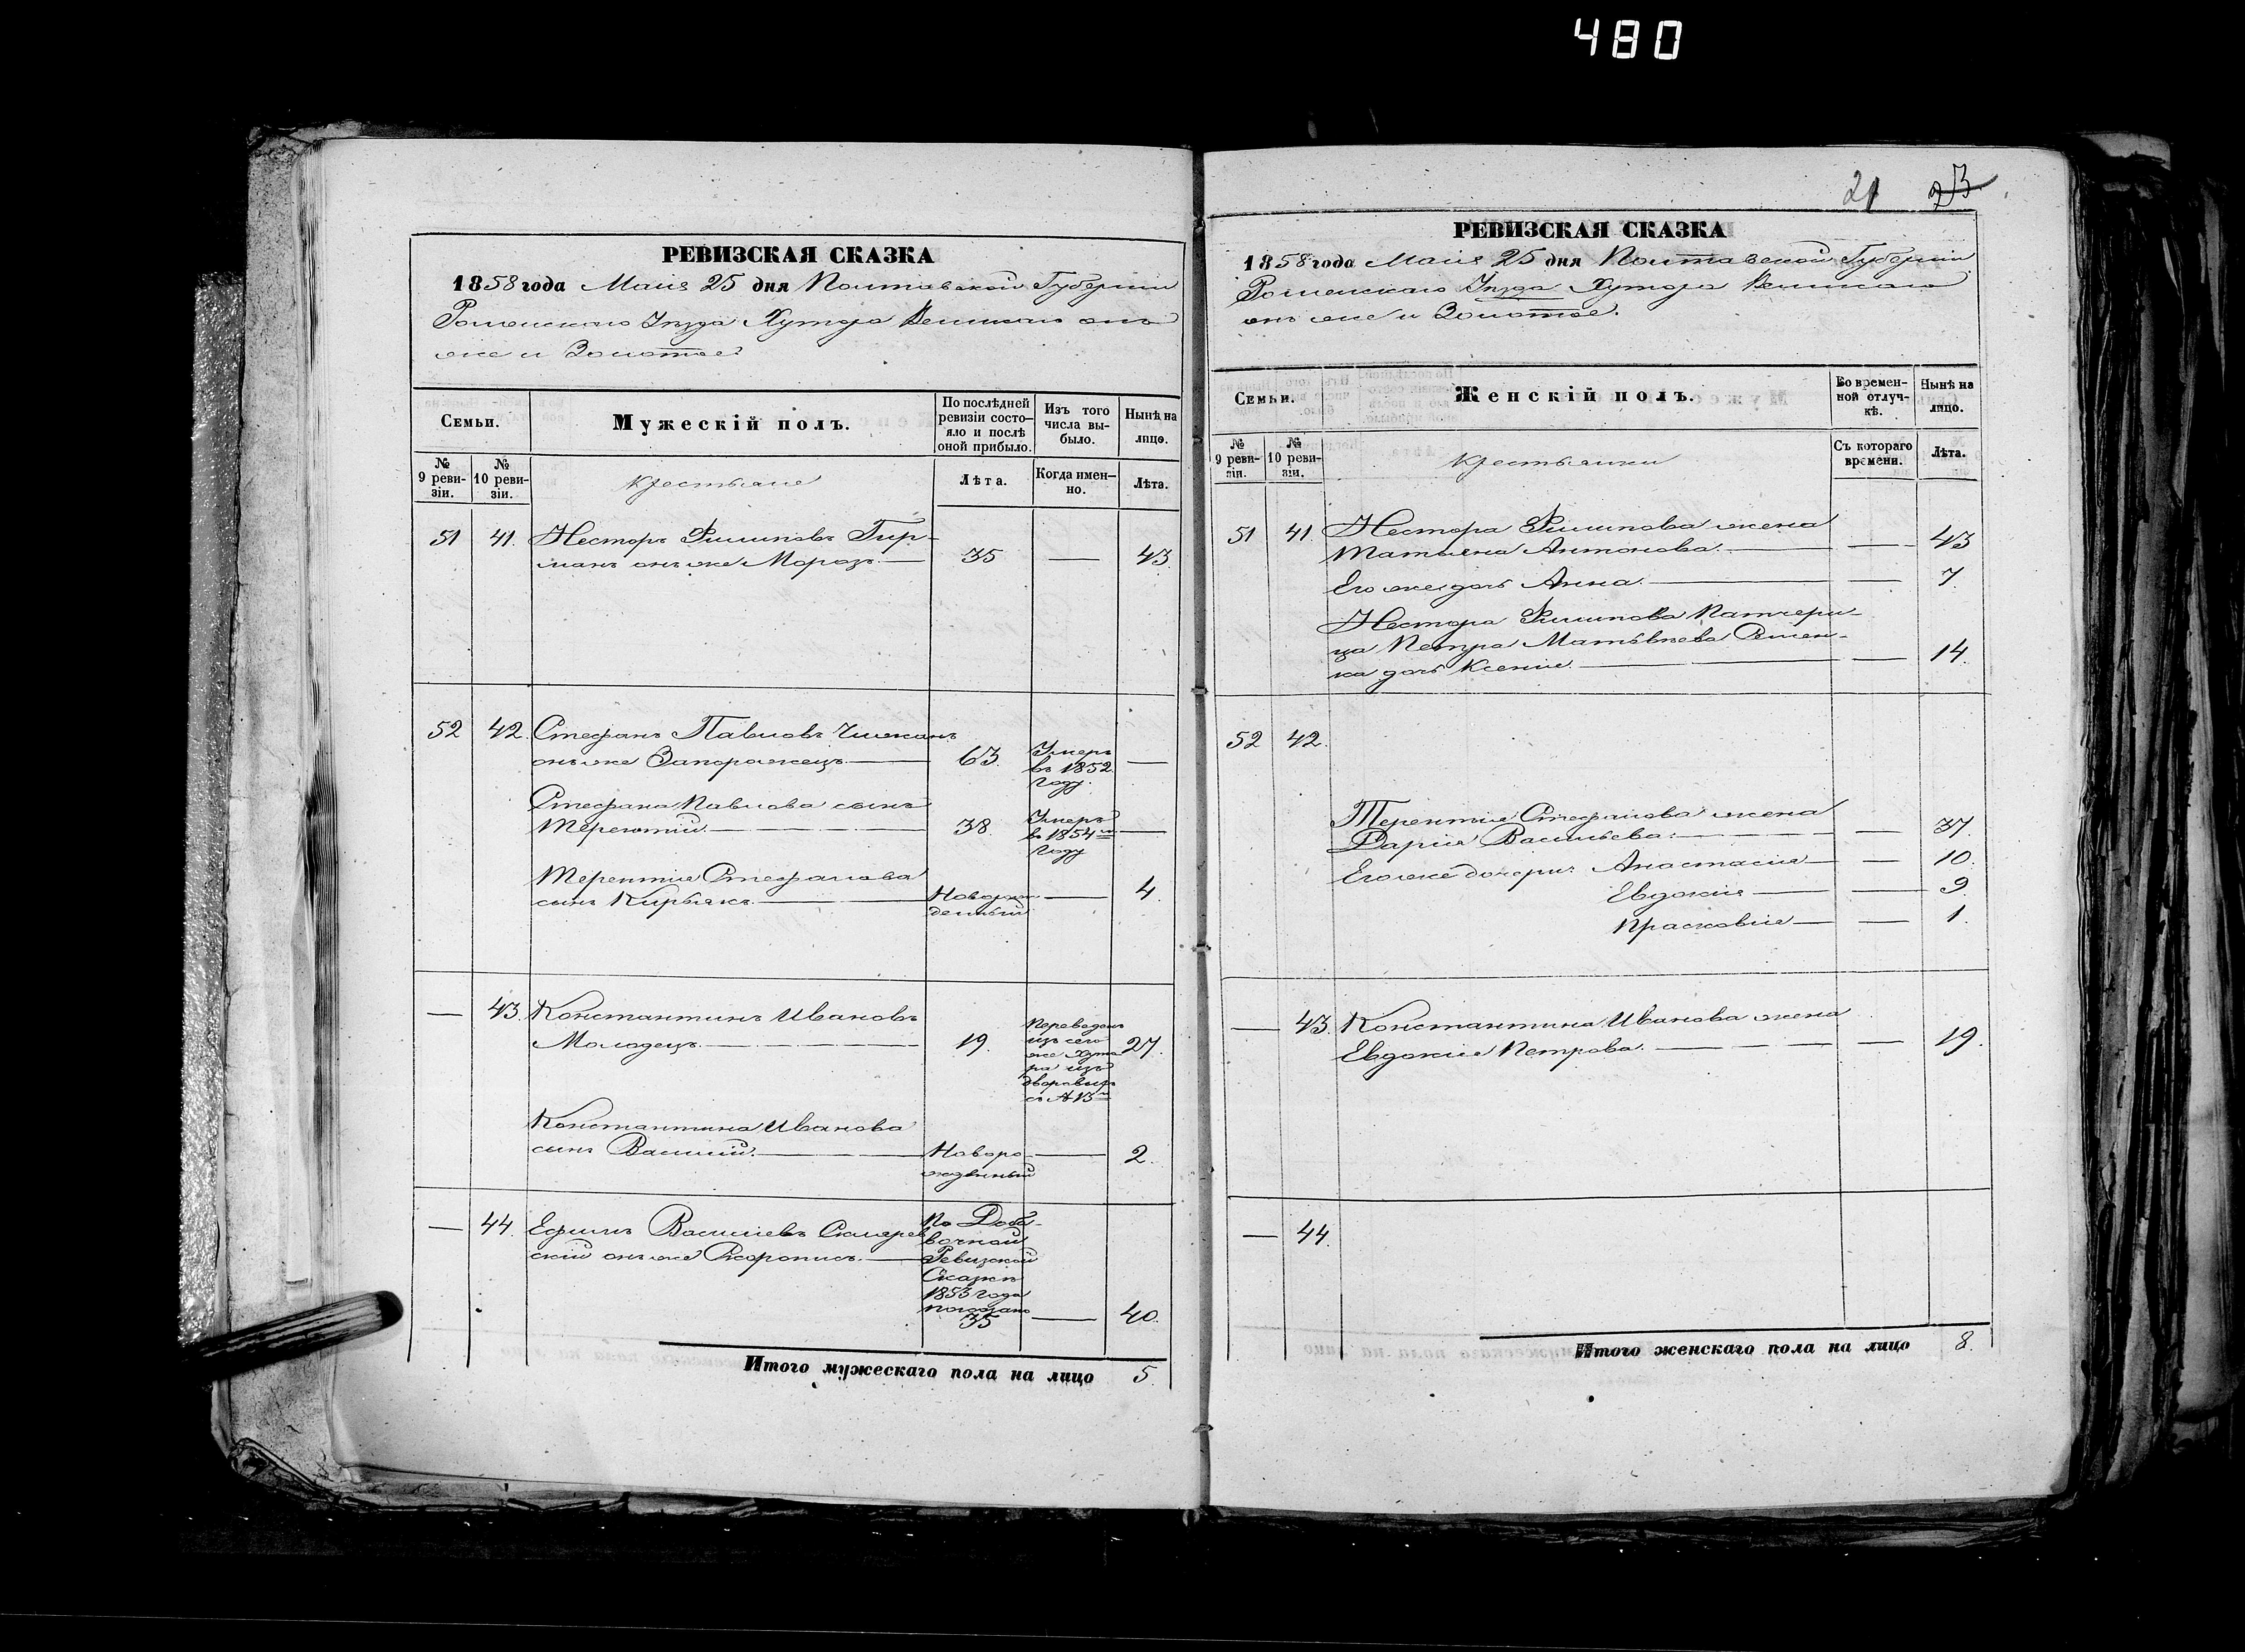 480
РЕВИЗСКАЯ СКАЗКА
1858 года Маия 25 дня Полтавской Губернии
Роменскаго Уезда Хутора Великаго онъ
же и Золотое
Семьи.
Мужескій полъ.
По послѣдней ревизіи состо-
яло и послѣ оной прибыло.
Изъ того числа вы-
было.
Нынѣ на лицо.
№ 9 реви-
зіи.
№ 10 реви-
зіи.
Крестьяне
Лѣта.
Когда имен-
но.
Лѣта.
51 41. Несторъ Филиповъ Гир-
манъ онъ же Морозъ 35 — 43.
52 42. Стефанъ Павловъ Чижанъ
онъ же Запорожецъ 63. Умеръ въ 1852 году. —
Стефана Павлова сынъ
Терентій 38. Умеръ в 1854м году —
Терентія Стефанова
сынъ Кирьякъ Новорож-
денный — 4.
— 43. Константинъ Ивановъ
Молодецъ 19. Переведенъ
изъ сего
же Хуто
ра изъ
дворовыхъ
27.
Константина Иванова
сынъ Василій Новоро-
жденный — 2.
— 44. Ефимъ Васильевъ Скляров
скій онъ же Скорописъ
По Доба-
вочной
Ревизской
Сказки
1853 года
показано
35 — 40.
Итого мужескаго пола на лицо 5.
21 23
РЕВИЗСКАЯ СКАЗКА
1858 года Маия 25 дня Полтавской Губернии
Роменскаго Уезда Хутора Великаго
онъ же и Золотое.
Семьи.
Женскій полъ.
Во времен-
ной отлуч-
кѣ.
Нынѣ на лицо.
№ 9 реви-
зіи.
№ 10 реви-
зіи.
Крестьянки
Съ котораго времени.
Лѣта.
51 41. Нестора Филипова жена
Татьяна Антонова — 43
Его же дочь Анна — 7.
Нестора Филипова Патчери-
ца Петра Матвѣева
дочь Ксения — 14.
52 42.
Терентия Стефанова жена
Дария Васильева — 37.
Его же дочери Анастасия — 10.
Евдокия — 9.
Прасковия — 1.
— 43. Константина Иванова жена
Евдокия Петрова — 19.
— 44.
Итого женскаго пола на лицо 8.